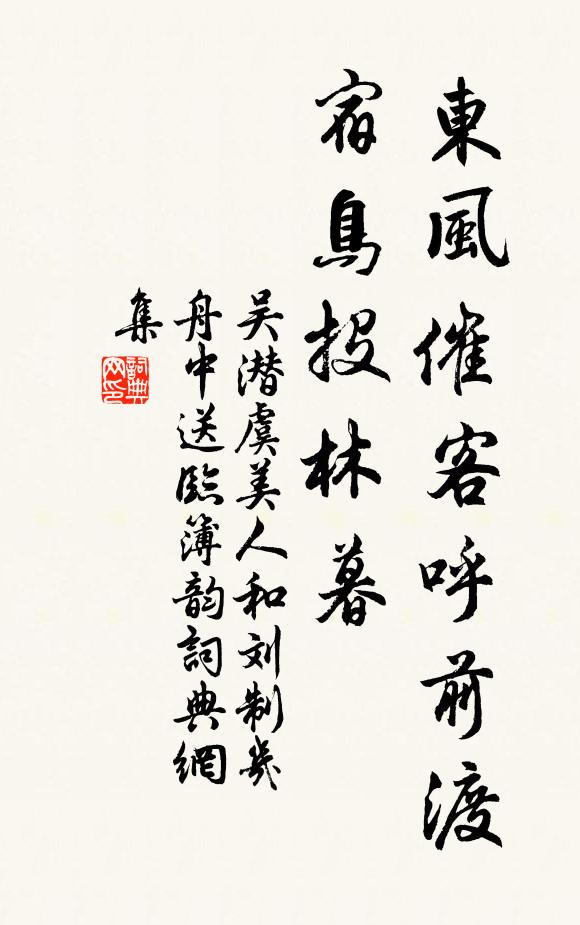 東風催客呼前渡
宿鳥投林暮
吴潜虞美人和刘制幾
舟中送監簿韵詞典網
集
詞典網印